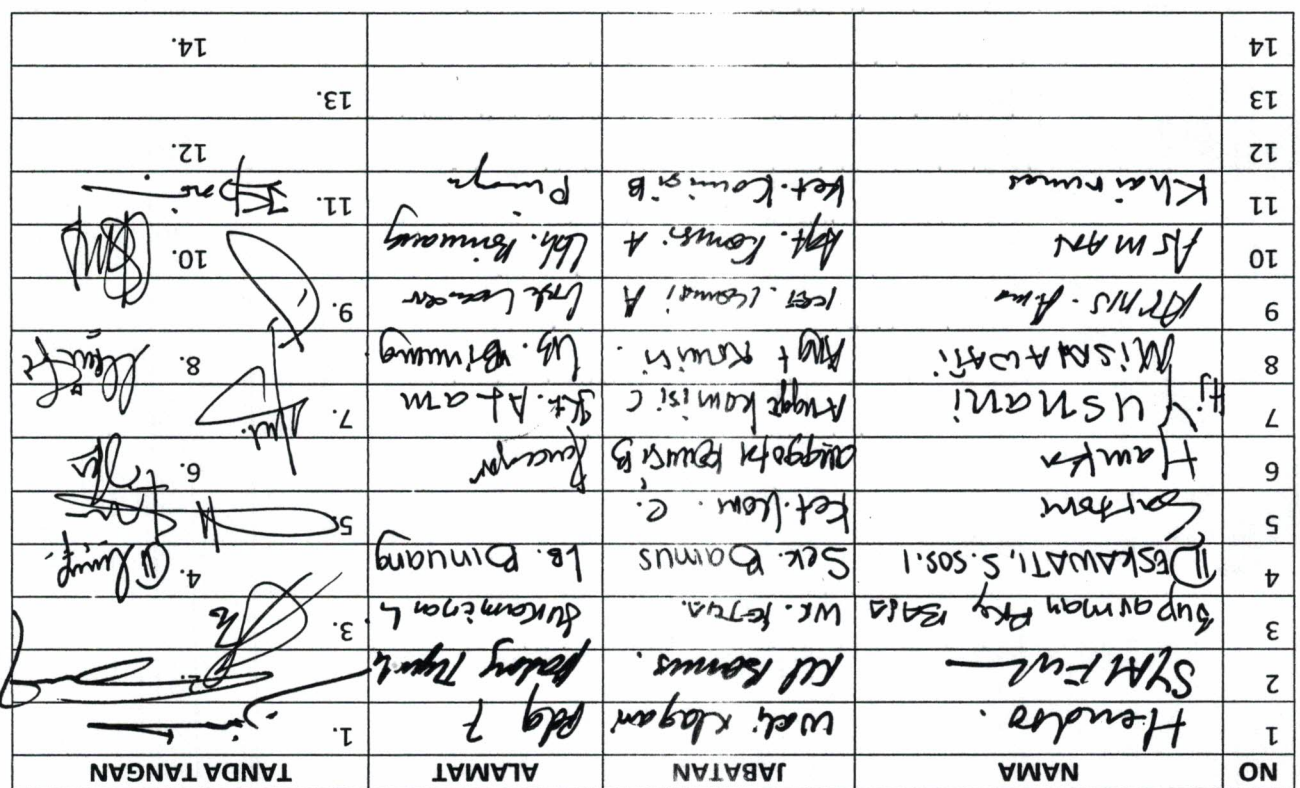 NO NAMA JABATAN ALAMAT TANDA TANGAN
1 Hendro. Wali Nagari Pdg 7 1.
2 SYAIFUL Kt Bamus. Padang 2.
3 Suparman Pky BASA WK. KETUA. SUKAMENAN 3.
4 DESKAWATI, S.SOS.I Sek. Bamus LB. BINUANG 4.
5 Sartoni Ket. Kom. C. 5.
6 Hamka anggota komisi B 6.
7 Hj YUSNANI Angga komisi C Kt. ALAM 7.
8 MISNAWATI Angt Komisi. LB. Binuang 8.
9 Ket. Komisi A 9.
10 ASMAN Agt. Komisi A Lbh. Binuang 10.
11 Khairunas Ket. Komisi B 11.
12 12.
13 13.
14 14.